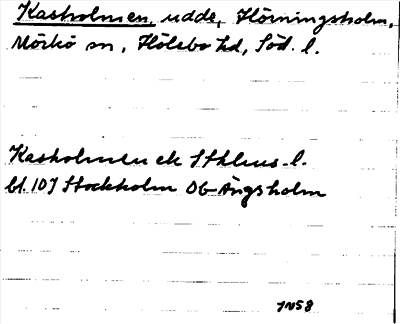 Kasholmen, udde, Hörningsholm,
Mörkö sn, Hölebo hd, Söd. l.
Kasholmen ek Sthlms l.
bl. 107 Stockholm OG Ängsholm
JN58